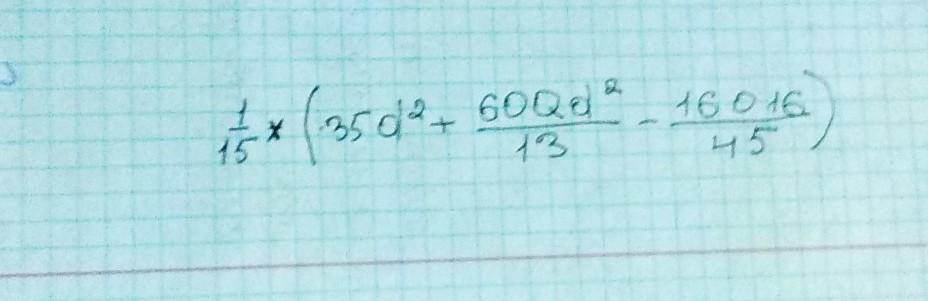 1/15 × (35d² + 600d²/13 - 16016/45)